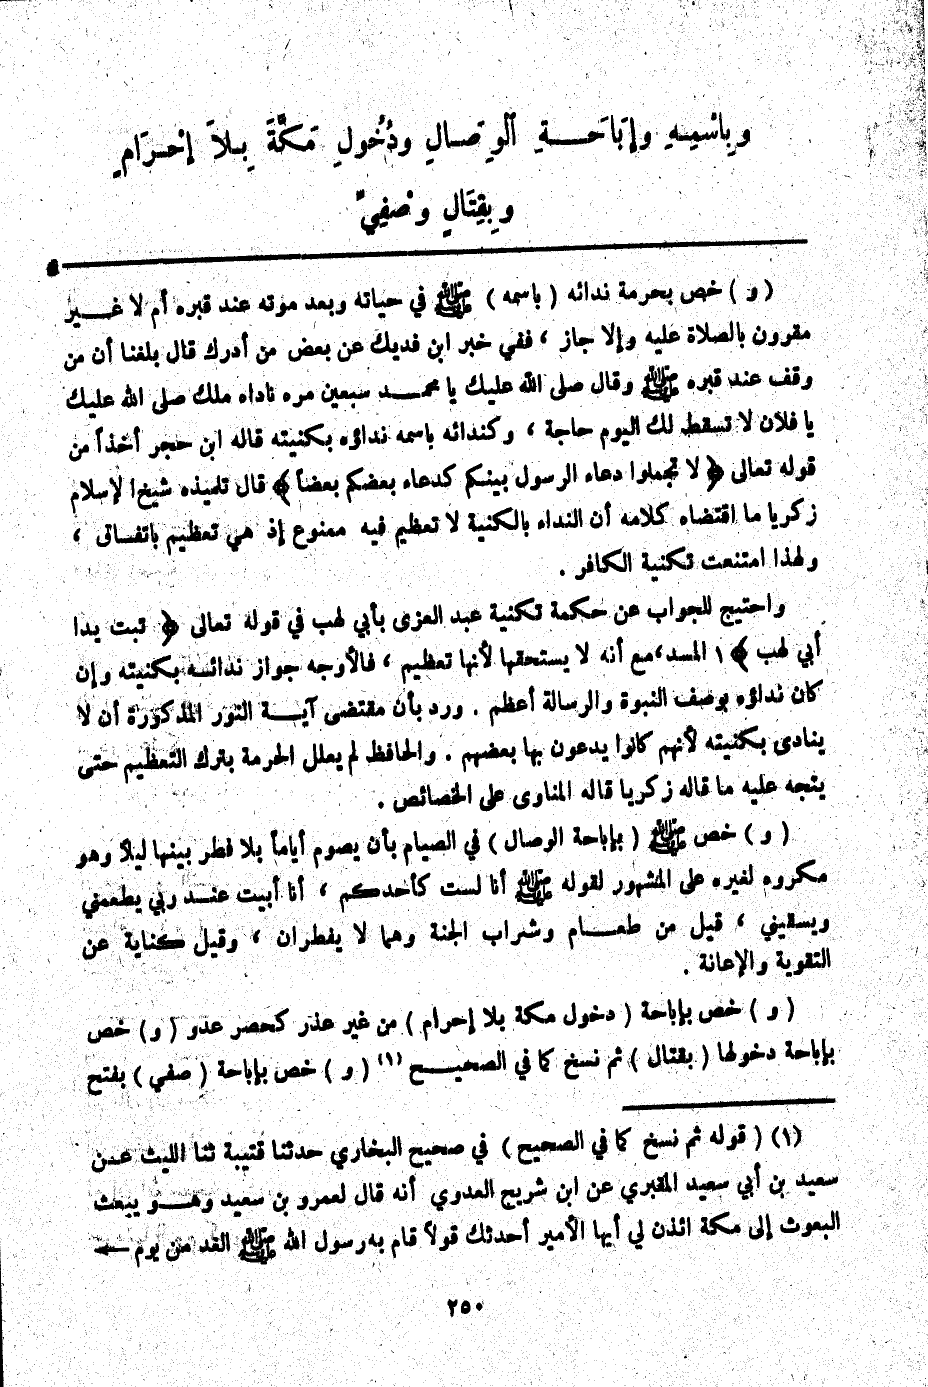 وَبِاسْمِهِ وإِبَاحَـــةِ اَلْوِصَـالِ ودُخُولِ مَكَّةَ بِـلاَ إِحْـرَامٍ
وبِقِتَالٍ وصَفِيّ
( و ) خص بحرمة ندائه ( باسمه ) ﷺ في حياته وبعد موته عند قبره أم لا غـــير
مقرون بالصلاة عليه وإلا جاز ، ففي خبر ابن فديك عن بعض من أدرك قال بلغنا أن من
وقف عند قبره ﷺ وقال صلى الله عليك يا محمـــد سبعين مره ناداه ملك صلى الله عليك
يا فلان لا تسقط لك اليوم حاجة ، وكندائه باسمه نداؤه بكنيته قاله ابن حجر أخذاً من
قوله تعالى ﴿ لا تجعلوا دعاء الرسول بينكم كدعاء بعضكم بعضاً ﴾ قال تلميذه شيخ الإسلام
زكريا ما اقتضاه كلامه أن النداء بالكنية لا تعظيم فيه ممنوع إذ هي تعظيم باتفـاق ،
ولهذا امتنعت تكنية الكافر .
واحتيج للجواب عن حكمة تكنية عبد العزى بأبي لهب في قوله تعالى ﴿ تبت يدا
أبي لهب ﴾ ١ المسد،مع أنه لا يستحقها لأنها تعظيم ، فالأوجه جواز ندائـه بكنيته وإن
كان نداؤه بوصف النبوة والرسالة أعظم . ورد بأن مقتضى آيـــة النور المذكورة أن لا
ينادى بكنيته لأنهم كانوا يدعون بها بعضهم . والحافظ لم يعلل الحرمة بترك التعظيم حتى
يتجه عليه ما قاله زكريا قاله المناوى على الخصائص .
( و ) خص ﷺ ( بإباحة الوصال ) في الصيام بأن يصوم أياماً بلا فطر بينها ليلاً وهو
مكروه لغيره على المشهور لقوله ﷺ أنا لست كأحدكم ، أنا أبيت عنـد ربي يطعمني
ويسقيني ، قيل من طعــام وشراب الجنة وهما لا يفطران ، وقيل كناية عن
التقوية والإعانة .
( و ) خص بإباحة ( دخول مكة بلا إحرام ) من غير عذر كحصر عدو ( و) خص
بإباحة دخولها ( بقتال ) ثم نسخ كما في الصحيـــح (١) ( و ) خص بإباحة ( صفي ) بفتح
(١) ( قوله ثم نسخ كما في الصحيح ) في صحيح البخاري حدثنا قتيبة ثنا الليث عـن
سعيد بن أبي سعيد المقبري عن ابن شريح العدوي أنه قال لعمرو بن سعيد وهــو يبعث
البعوث إلى مكة ائذن لي أيها الأمير أحدثك قولاً قام به رسول الله ﷺ الغد من يوم ←
٢٥٠